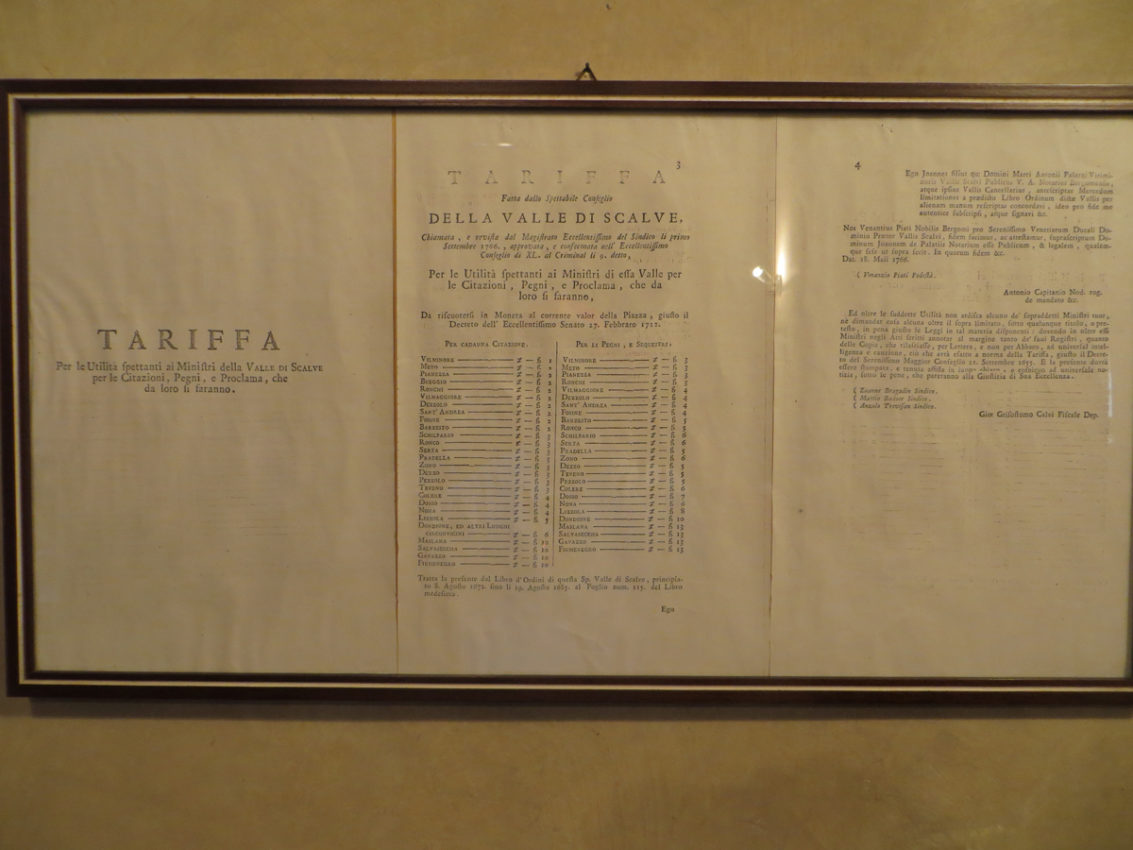 TARIFFA
Per le Utilità spettanti ai Ministri della VALLE DI SCALVE
per le Citazioni, Pegni, e Proclama, che
da loro si faranno.
3
TARIFFA
Fatta dallo Spettabile Consiglio
DELLA VALLE DI SCALVE,
Chiamata, e rivista dal Magistrato Eccellentissimo del Sindico li primo
Settembre 1766., approvata, e confermata nell' Eccellentissimo
Consiglio di XL. al Criminal li 9. detto,
Per le Utilità spettanti ai Ministri di essa Valle per
le Citazioni, Pegni, e Proclama, che da
loro si faranno,
Da riscuotersi in Moneta al corrente valor della Piazza, giusto il
Decreto dell' Eccellentissimo Senato 27. Febbraro 1712.
PER CADAUNA CITAZIONE.
VILMINORE
METO
PIANEZZA
BUEGGIO
RONCHI
VILMAGGIORE
DEZZOLO
SANT' ANDREA
FOSINE
BARZESTO
SCHILPARIO
RONCO
SERTA
PRADELLA
ZONO
DEZZO
PEZZOLO
TEVENO
COLERE
DOSSO
NONA
LIZZOLA
DONZIONE, ED ALTRI LUOGHI
CIRCONVICINI
MASLANA
SALVASECCHA
GAVAZZO
FIUMENEGRO
PER LI PEGNI, E SEQUESTRI
VILMINORE
METO
PIANEZZA
RONCHI
VILMAGGIORE
DEZZOLO
SANT' ANDREA
FOSINE
BARZESTO
RONCO
SCHILPARIO
SERTA
PRADELLA
ZONO
DEZZO
TEVENO
PEZZOLO
COLERE
DOSSO
NONA
LIZZOLA
DONZIONE
MASLANA
SALVASECCHA
GAVAZZO
FIUMENEGRO
Tratta la presente dal Libro d'Ordini di questa Sp. Valle di Scalve, principia-
to 8. Agosto 1672. sino li 19. Agosto 1685. al Foglio num. 115. del Libro
medesimo.
Ego
4
Ego Joannes filius qu: Domini Marci Antonii
aeque ipsius Vallis Cancellarius, antescriptas Mercedum
limitationes a praedicto Libro Ordinum dictae Vallis per
alienam manum rescriptas concordavi, ideo pro fide me
autentice subscripsi, atque signavi &c.
Nos Venantius Piati Nobilis Bergomi pro Serenissimo Venetiarum Ducali Do-
minio Praetor Vallis Scalvi, fidem facimus, ac attestamur, suprascriptum Do-
minum Joannem de Palatiis Notarium esse Publicum, & legalem, qualem-
que se facit ut supra fecit. In quorum fidem &c.
Dat. 18. Maii 1766.
( Vinanzio Piati Podestà.
Antonio Capitanio Nod. rog.
de mandato &c.
Ed oltre le suddette Utilità non ardisca alcuno de' sopraddetti Ministri tuor,
nè dimandar cosa alcuna oltre il sopra limitato, sotto qualunque titolo, o pre-
testo, in pena giusto le Leggi in tal materia disponenti: dovendo in oltre essi
Ministri negli Atti scritti annotar al margine tanto de' suoi Registri, quanto
delle Copie, che rilasciasse, per Lettera, e non per Abbaco, ad universal intel-
ligenza e cauzione, ciò che avrà esatto a norma della Tariffa, giusto il Decre-
to del Serenissimo Maggior Consiglio 21. Settembre 1655. E la presente dovrà
essere stampata, e tenuta affissa in luogo a universale no-
tizia, sotto le pene, che pareranno alla Giustizia di Sua Eccellenza.
( Zuanne Bragadin Sindico.
( Mattio Sindico.
( Anzolo Trevisan Sindico.
Gio: Grisostomo Calvi Fiscale Dep.